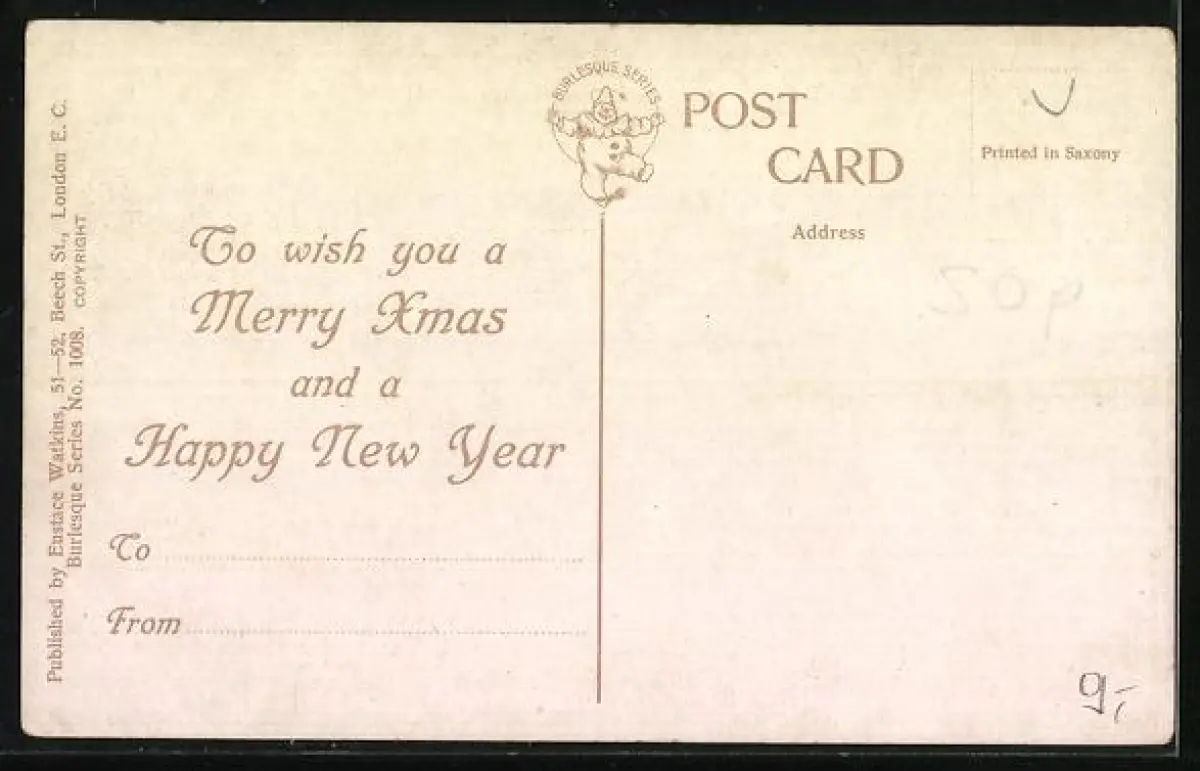 Published by Eustace Watkins, 51—52, Beech St., London E. C.
Burlesque Series No. 1008. COPYRIGHT
BURLESQUE SERIES
POST
CARD
Printed in Saxony
Address
To wish you a
Merry Xmas
and a
Happy New Year
To
From
9,-